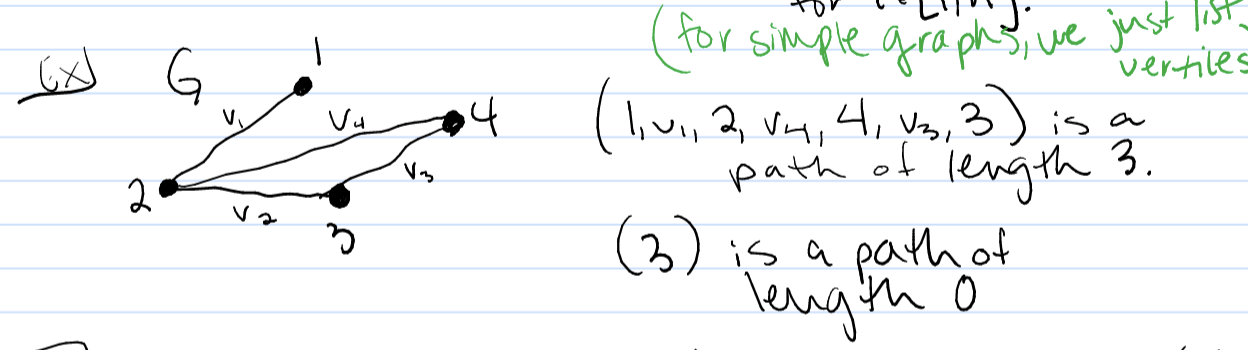 (for simple graphs, we just list
vertiles
Ex) G 1
v₁ v₄ 4
(1, v₁, 2, v₄, 4, v₃, 3) is a
path of length 3.
v₃
2 v₂
3
(3) is a path of
length 0